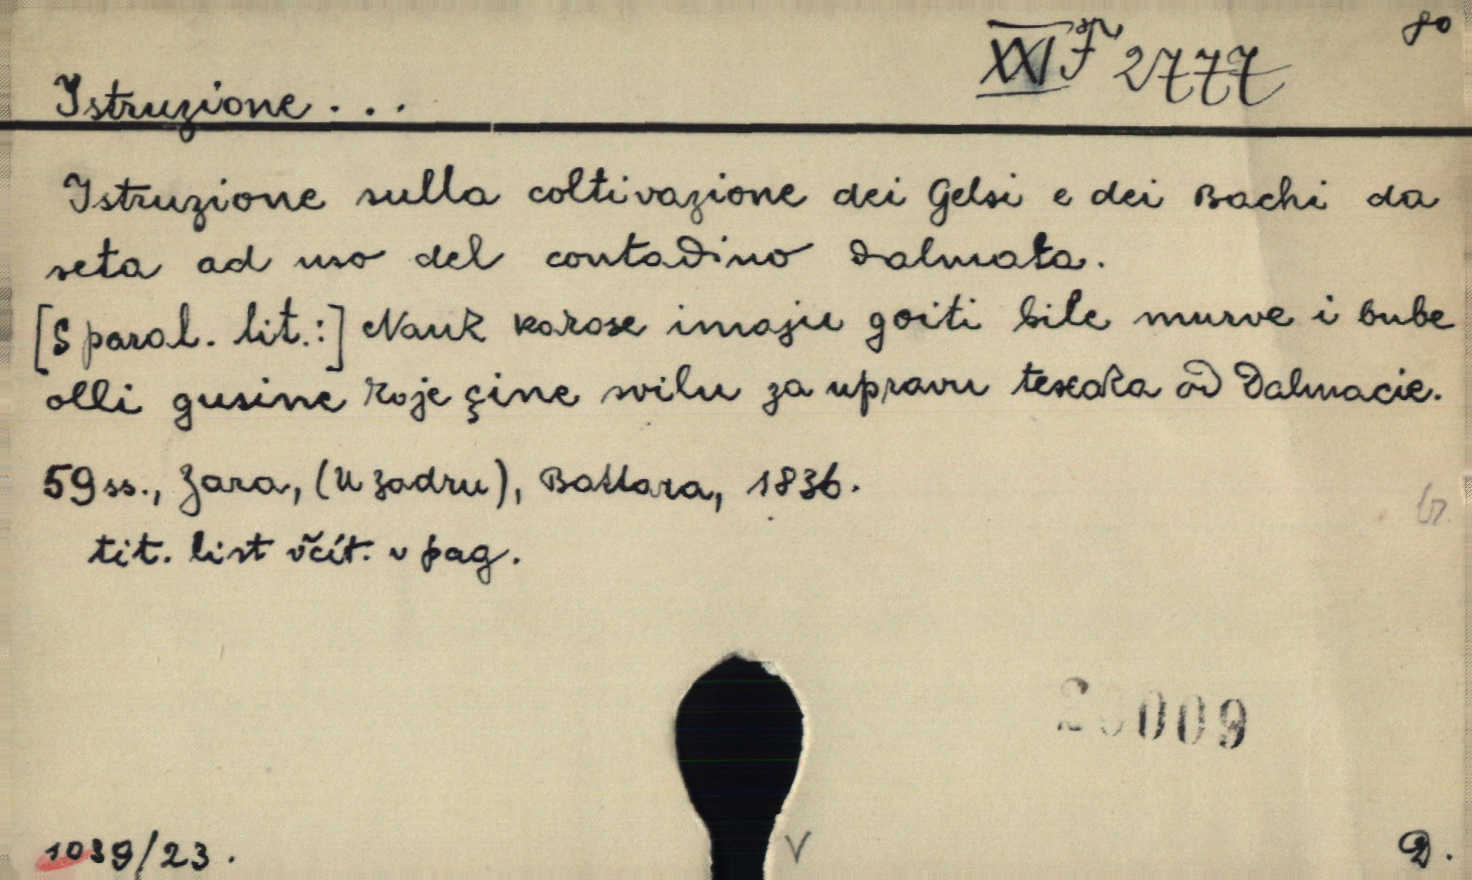 XXI F 2777
8o
Istruzione...
Istruzione sulla coltivazione dei Gelsi e dei Bachi da
seta ad uso del contadino dalmata.
[S paral. lit.:] Nauk karose imaju goiti bile murve i bube
olli gusine koje çine svilu za upravu texaka od Dalmacie.
59 ss., Zara, (U Zadru), Battara, 1836.
tit. list včít. v pag.
20009
1039/23.
D.